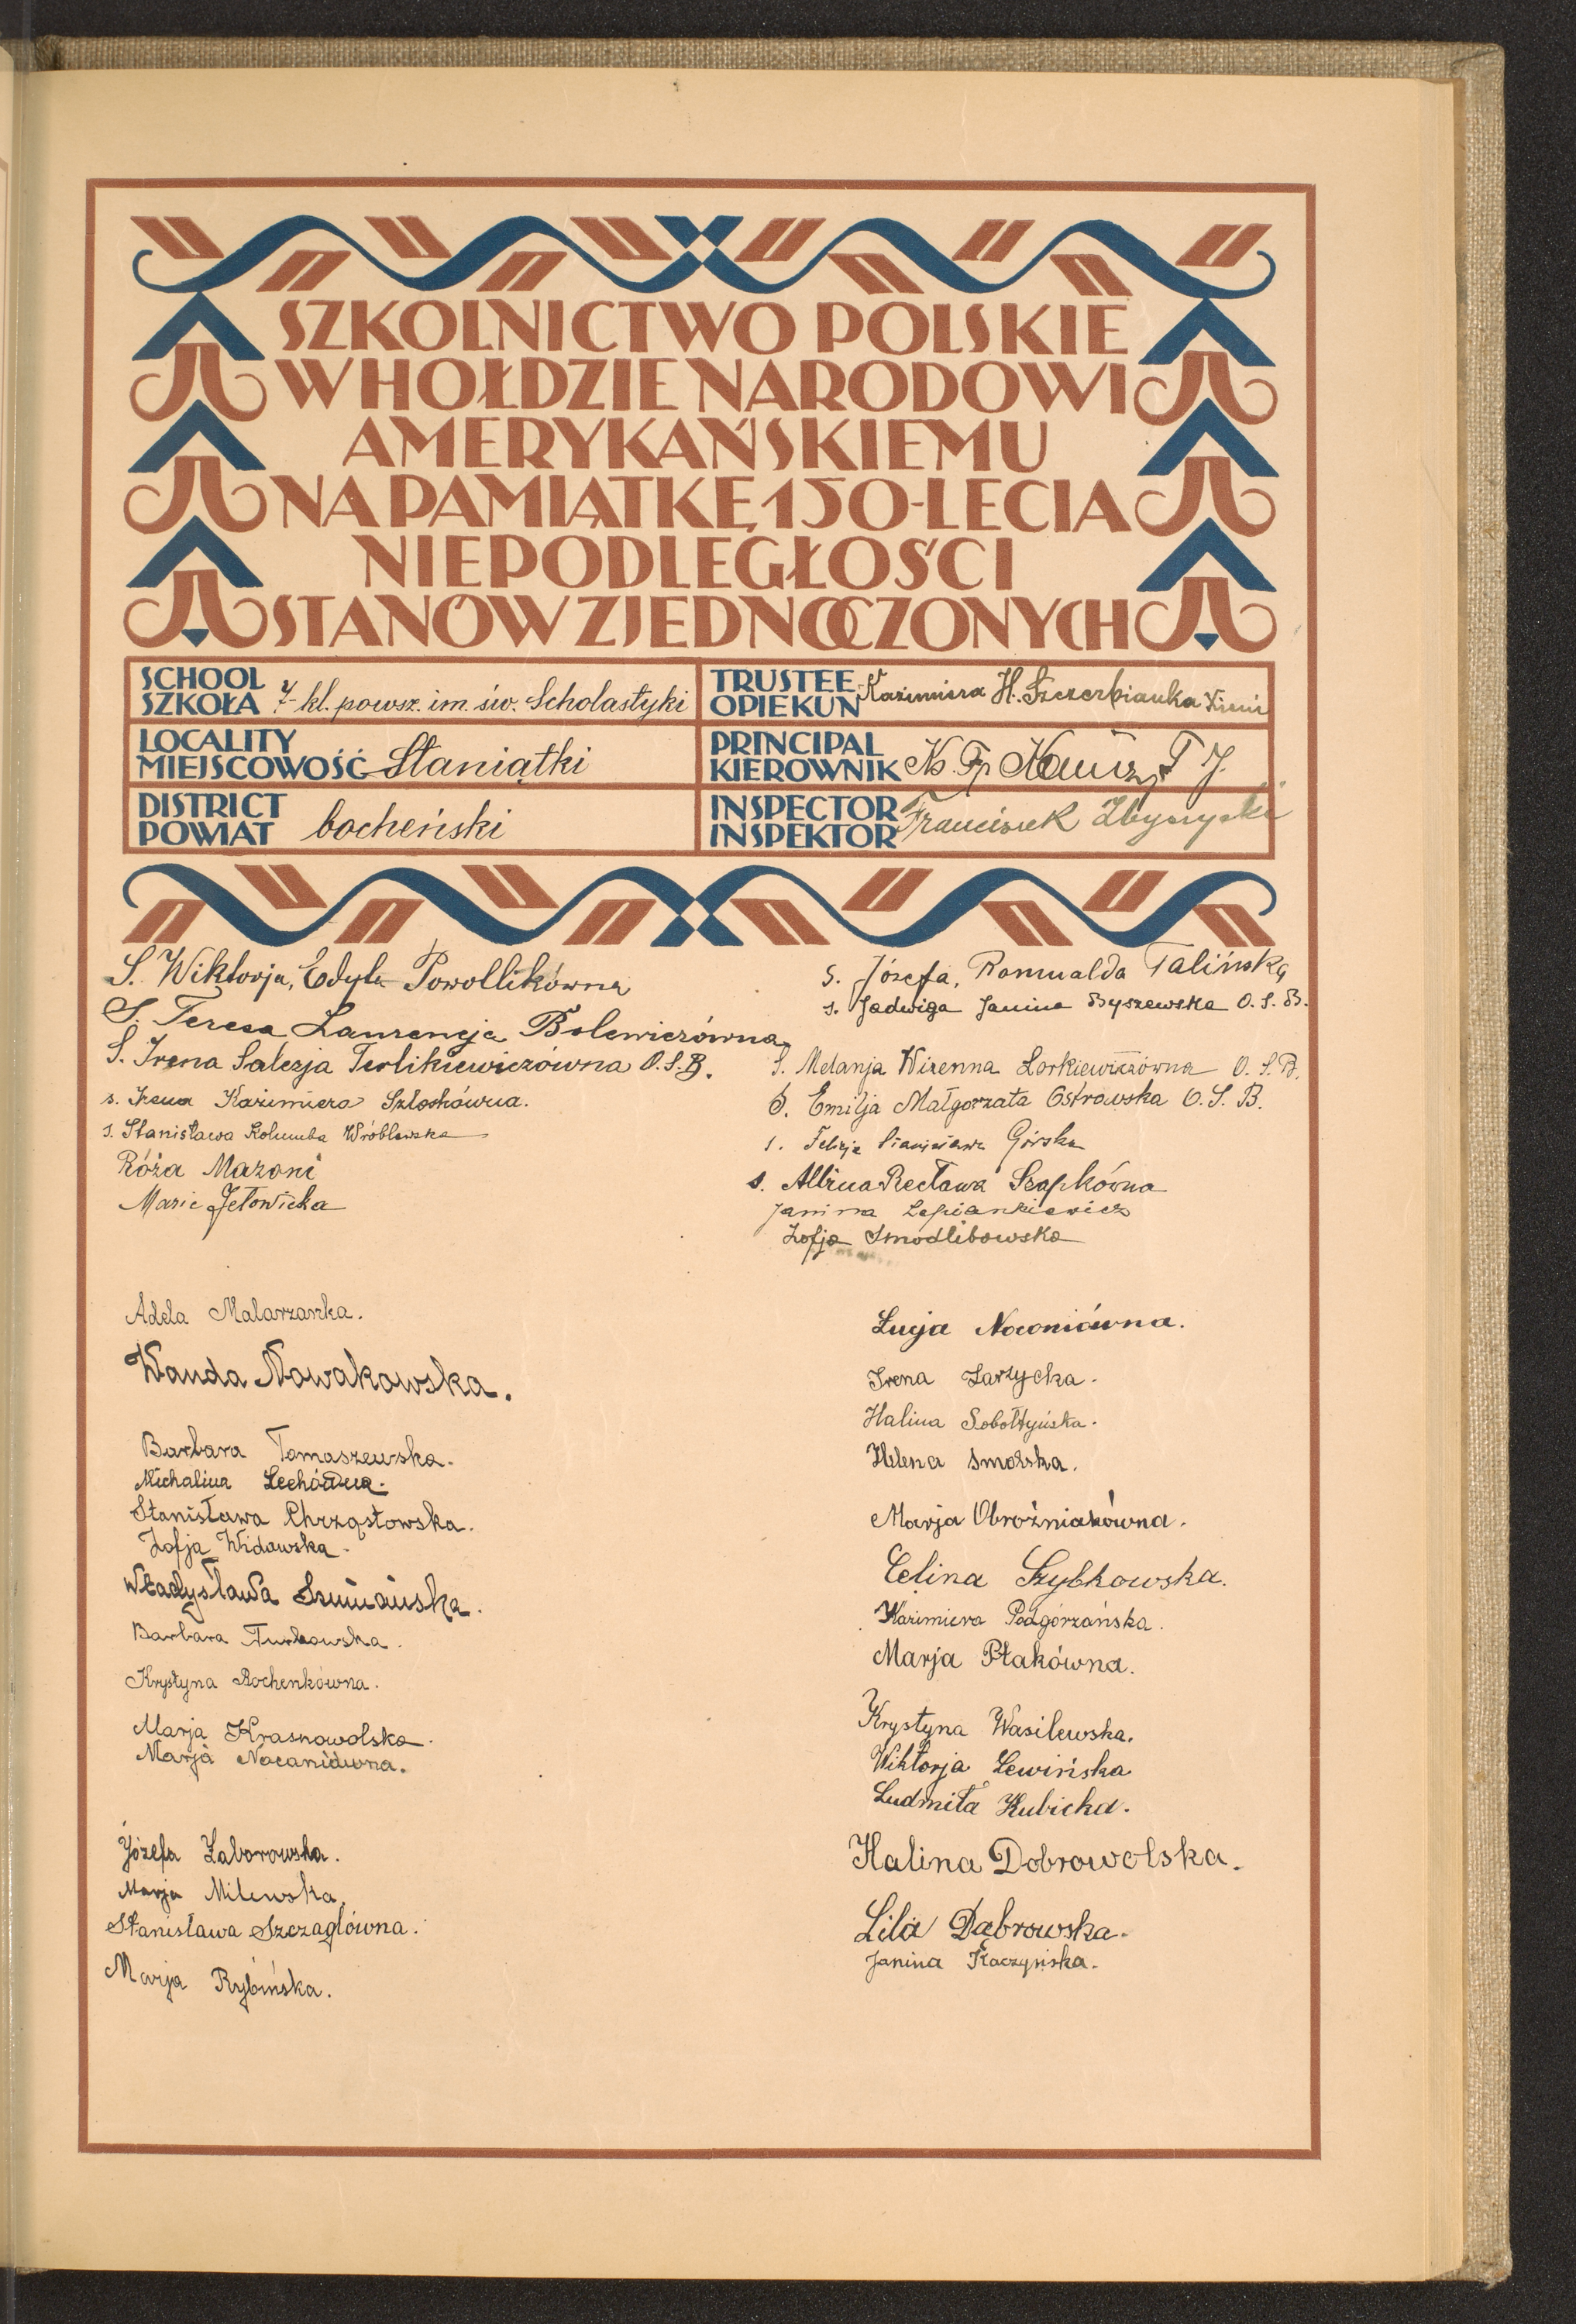 SZKOLNICTWO POLSKIE
W HOŁDZIE NARODOWI
AMERYKAŃSKIEMU
NA PAMIĄTKĘ 150-LECIA
NIEPODLEGŁOŚCI
STANÓW ZJEDNOCZONYCH
SCHOOL
SZKOŁA 7-kl. powsz. im. św. Scholastyki
TRUSTEE
OPIEKUN Kazimiera H. Szczerbianka
LOCALITY
MIEJSCOWOŚĆ Staniątki
PRINCIPAL
KIEROWNIK
DISTRICT
POWIAT bocheński
INSPECTOR
INSPEKTOR Franciszek
S. Wiktorja, Edyta Powollikówna
S. Teresa Laurencja Bolewiczówna
S. Irena Salezja Terlikiewiczówna O.S.B.
s. Irena Kazimiera Szloskówna.
s. Stanisława Kolumba Wróblewska
Róża Mazoni
Marie Jełowicka
s. Józefa, Romualda Talińska
s. Jadwiga Janina Byszewska O.S.B.
S. Melanja Wizenna Lorkiewiczówna O.S.B.
S. Emilja Małgorzata Ostrowska O.S.B.
s. Felicja Stanisława Górska
s. Albina Recława Szapkówna
Janina Łepiankiewicz
Zofja Smodlibowska
Adela Malarzanka.
Wanda Nowakowska.
Barbara Tomaszewska.
Michalina Lechówna.
Stanisława Chrząstowska.
Zofja Widawska.
Władysława Szumańska.
Barbara Turkowska.
Krystyna Bochenkówna.
Marja Krasnowolska.
Marja Nocaniówna.
Józefa Zaborowska.
Marja Milewska.
Stanisława Szczaglówna.
Marja Rybińska.
Łucja Nocaniówna.
Irena Zarzycka.
Halina Sobołtyńska.
Helena Smolska.
Marja Obroźniakówna.
Celina Szybkowska.
Kazimiera Podgórzańska.
Marja Ptakówna.
Krystyna Wasilewska.
Wiktorja Lewińska
Ludmiła Kubicka.
Halina Dobrowolska.
Lila Dąbrowska.
Janina Kaczyńska.